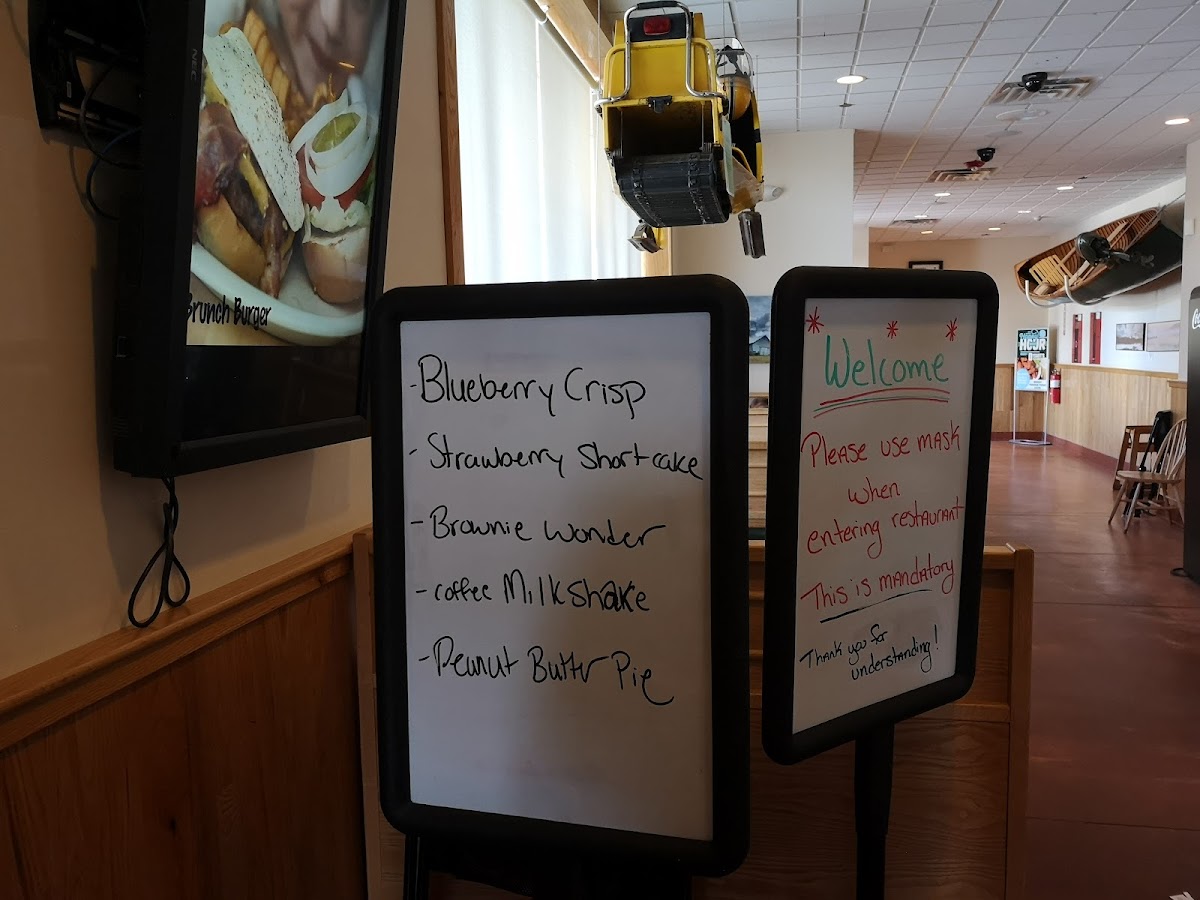 NEC
Brunch Burger
-Blueberry Crisp
-Strawberry Shortcake
-Brownie Wonder
-coffee Milkshake
-Peanut Butter Pie
* * *
Welcome
Please use mask
when
entering restaurant
This is mandatory
Thank you for
understanding!
HOUR